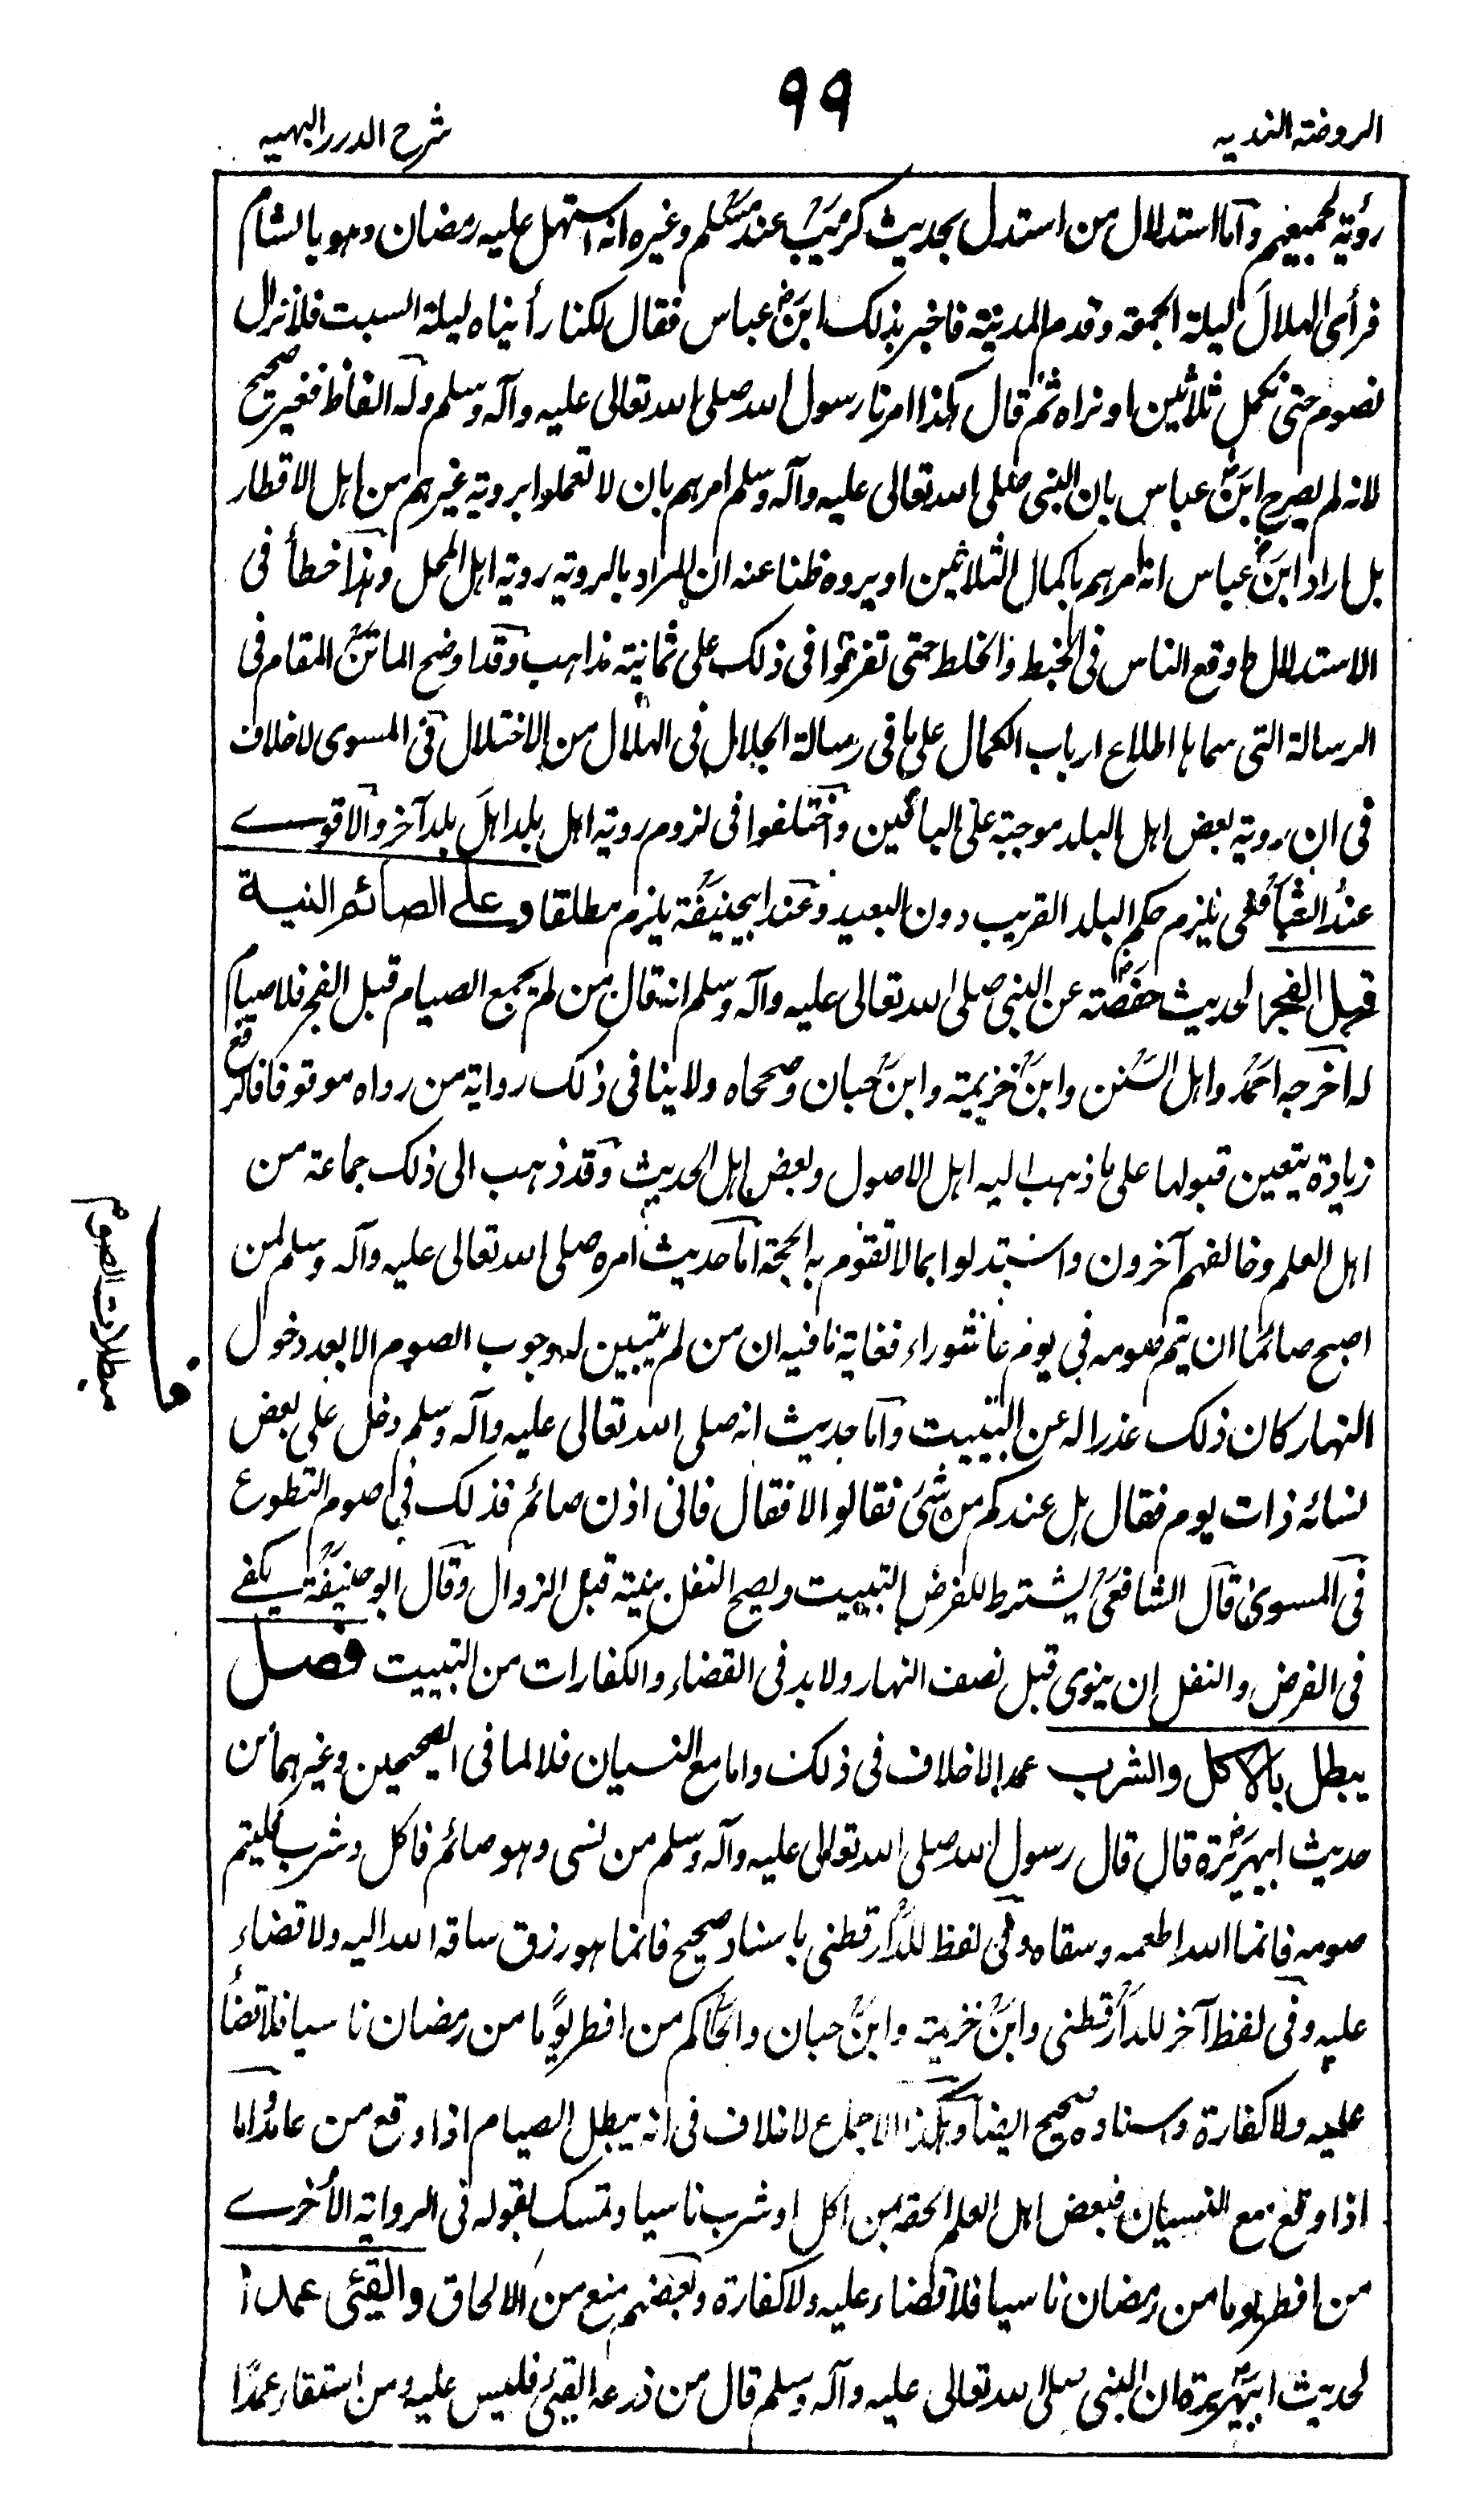 ٩٩
الروضة الندیه
شرح الدرر البهیه
رؤیة لجمیعهم وأما استدلال من استدل بحدیث کریب عند مسلم وغیره انه استهل علیه رمضان وهو بالشام
فرأی الهلال لیلة الجمعة وقدم المدینة فاخبر بذلک ابن عباس فقال لکنا رأیناه لیلة السبت فلا نزال
نصوم حتی نکمل ثلاثین او نراه ثم قال هکذا امرنا رسول الله صلی الله تعالی علیه وآله وسلم وله الفاظ فغیر صحیح
لانه لم یصرح ابن عباس بان النبی صلی الله تعالی علیه وآله وسلم امرهم بان لا تعملوا بروية غیرهم من اهل الاقطار
بل اراد ابن عباس انه امرهم باکمال الثلاثین او یروه ظنا عنه ان المراد بالرویة رویة اهل المحل وهذا خطأ فی
الاستدلال اوقع الناس فی الخبط والخلط حتی تفرقوا فی ذلک علی ثمانیة مذاهب وقد اوضح الماتن المقام فی
الرسالة التی سماها اطلاع ارباب الکمال علی ما فی رسالة الجلال فی الهلال من الاختلال فی المسوی لاخلاف
فی ان رویة بعض اهل البلد موجبة علی الباقین واختلفوا فی لزوم رویة اهل بلد اهل بلد آخر والاقوے
عند الشافعی یلزم حکم البلد القریب دون البعید وعند ابیحنیفة یلزم مطلقا وعلی الصائم النیة
قبل الفجر لحدیث حفصة عن النبی صلی الله تعالی علیه وآله وسلم انه قال من لم یجمع الصیام قبل الفجر فلا صیام
له اخرجه احمد واهل السنن وابن خزیمة وابن حبان وصححاه ولا ینافی ذلک روایة من رواه موقوفا فالرفع
زیادة یتعین قبولها علی ما ذهب الیه اهل الاصول وبعض اهل الحدیث وقد ذهب الی ذلک جماعة من
اهل العلم وخالفهم آخرون واستدلوا بما لا تقوم به الحجة اما حدیث امره صلی الله تعالی علیه وآله وسلم لمن
اصبح صائما ان یتم صومه فی یوم عاشوراء فغایة ما فیه ان من لم یتبین له وجوب الصوم الا بعد دخول
النهار کان ذلک عذرا له عن التبییت واما حدیث انه صلی الله تعالی علیه وآله وسلم دخل علی بعض
نسائه ذات یوم فقال هل عندکم من شئ فقالوا لا فقال فانی اذن صائم فذلک فی صوم التطوع
فی المسوی قال الشافعی یشترط للفرض التبییت ویصح النفل بنیة قبل الزوال وقال ابو حنیفة یکفے
فی الفرض والنفل ان ینوی قبل نصف النهار ولا بد فی القضاء والکفارات من التبییت فصل
یبطل بالاکل والشرب عمدا لاخلاف فی ذلک واما مع النسیان فلا لما فی الصحیحین وغیرهما من
حدیث ابیهریرة قال قال رسول الله صلی الله تعالی علیه وآله وسلم من نسی وهو صائم فاکل وشرب فلیتم
صومه فانما الله اطعمه وسقاه وفی لفظ للدارقطنی باسناد صحیح فانما هو رزق ساقه الله الیه ولا قضاء
علیه وفی لفظ آخر للدارقطنی وابن خزیمة وابن حبان والحاکم من افطر یوما من رمضان ناسیا فلا قضاء
علیه ولا کفارة واسناده صحیح ایضا وهکذا الاجماع لاخلاف فی انه یبطل الصیام اذا وقع من عامد اما
اذا وقع مع النسیان فبعض اهل العلم الحقه بمن اکل او شرب ناسیا وتمسک بقوله فی الروایة الأخرے
من افطر یوما من رمضان ناسیا فلا قضاء علیه ولا کفارة وبعضهم منع من الالحاق والقیئ عمدا
لحدیث ابیهریرة ان النبی صلی الله تعالی علیه وآله وسلم قال من ذرعه القیئ فلیس علیه ومن استقاء عمدا
مبطلات الصوم